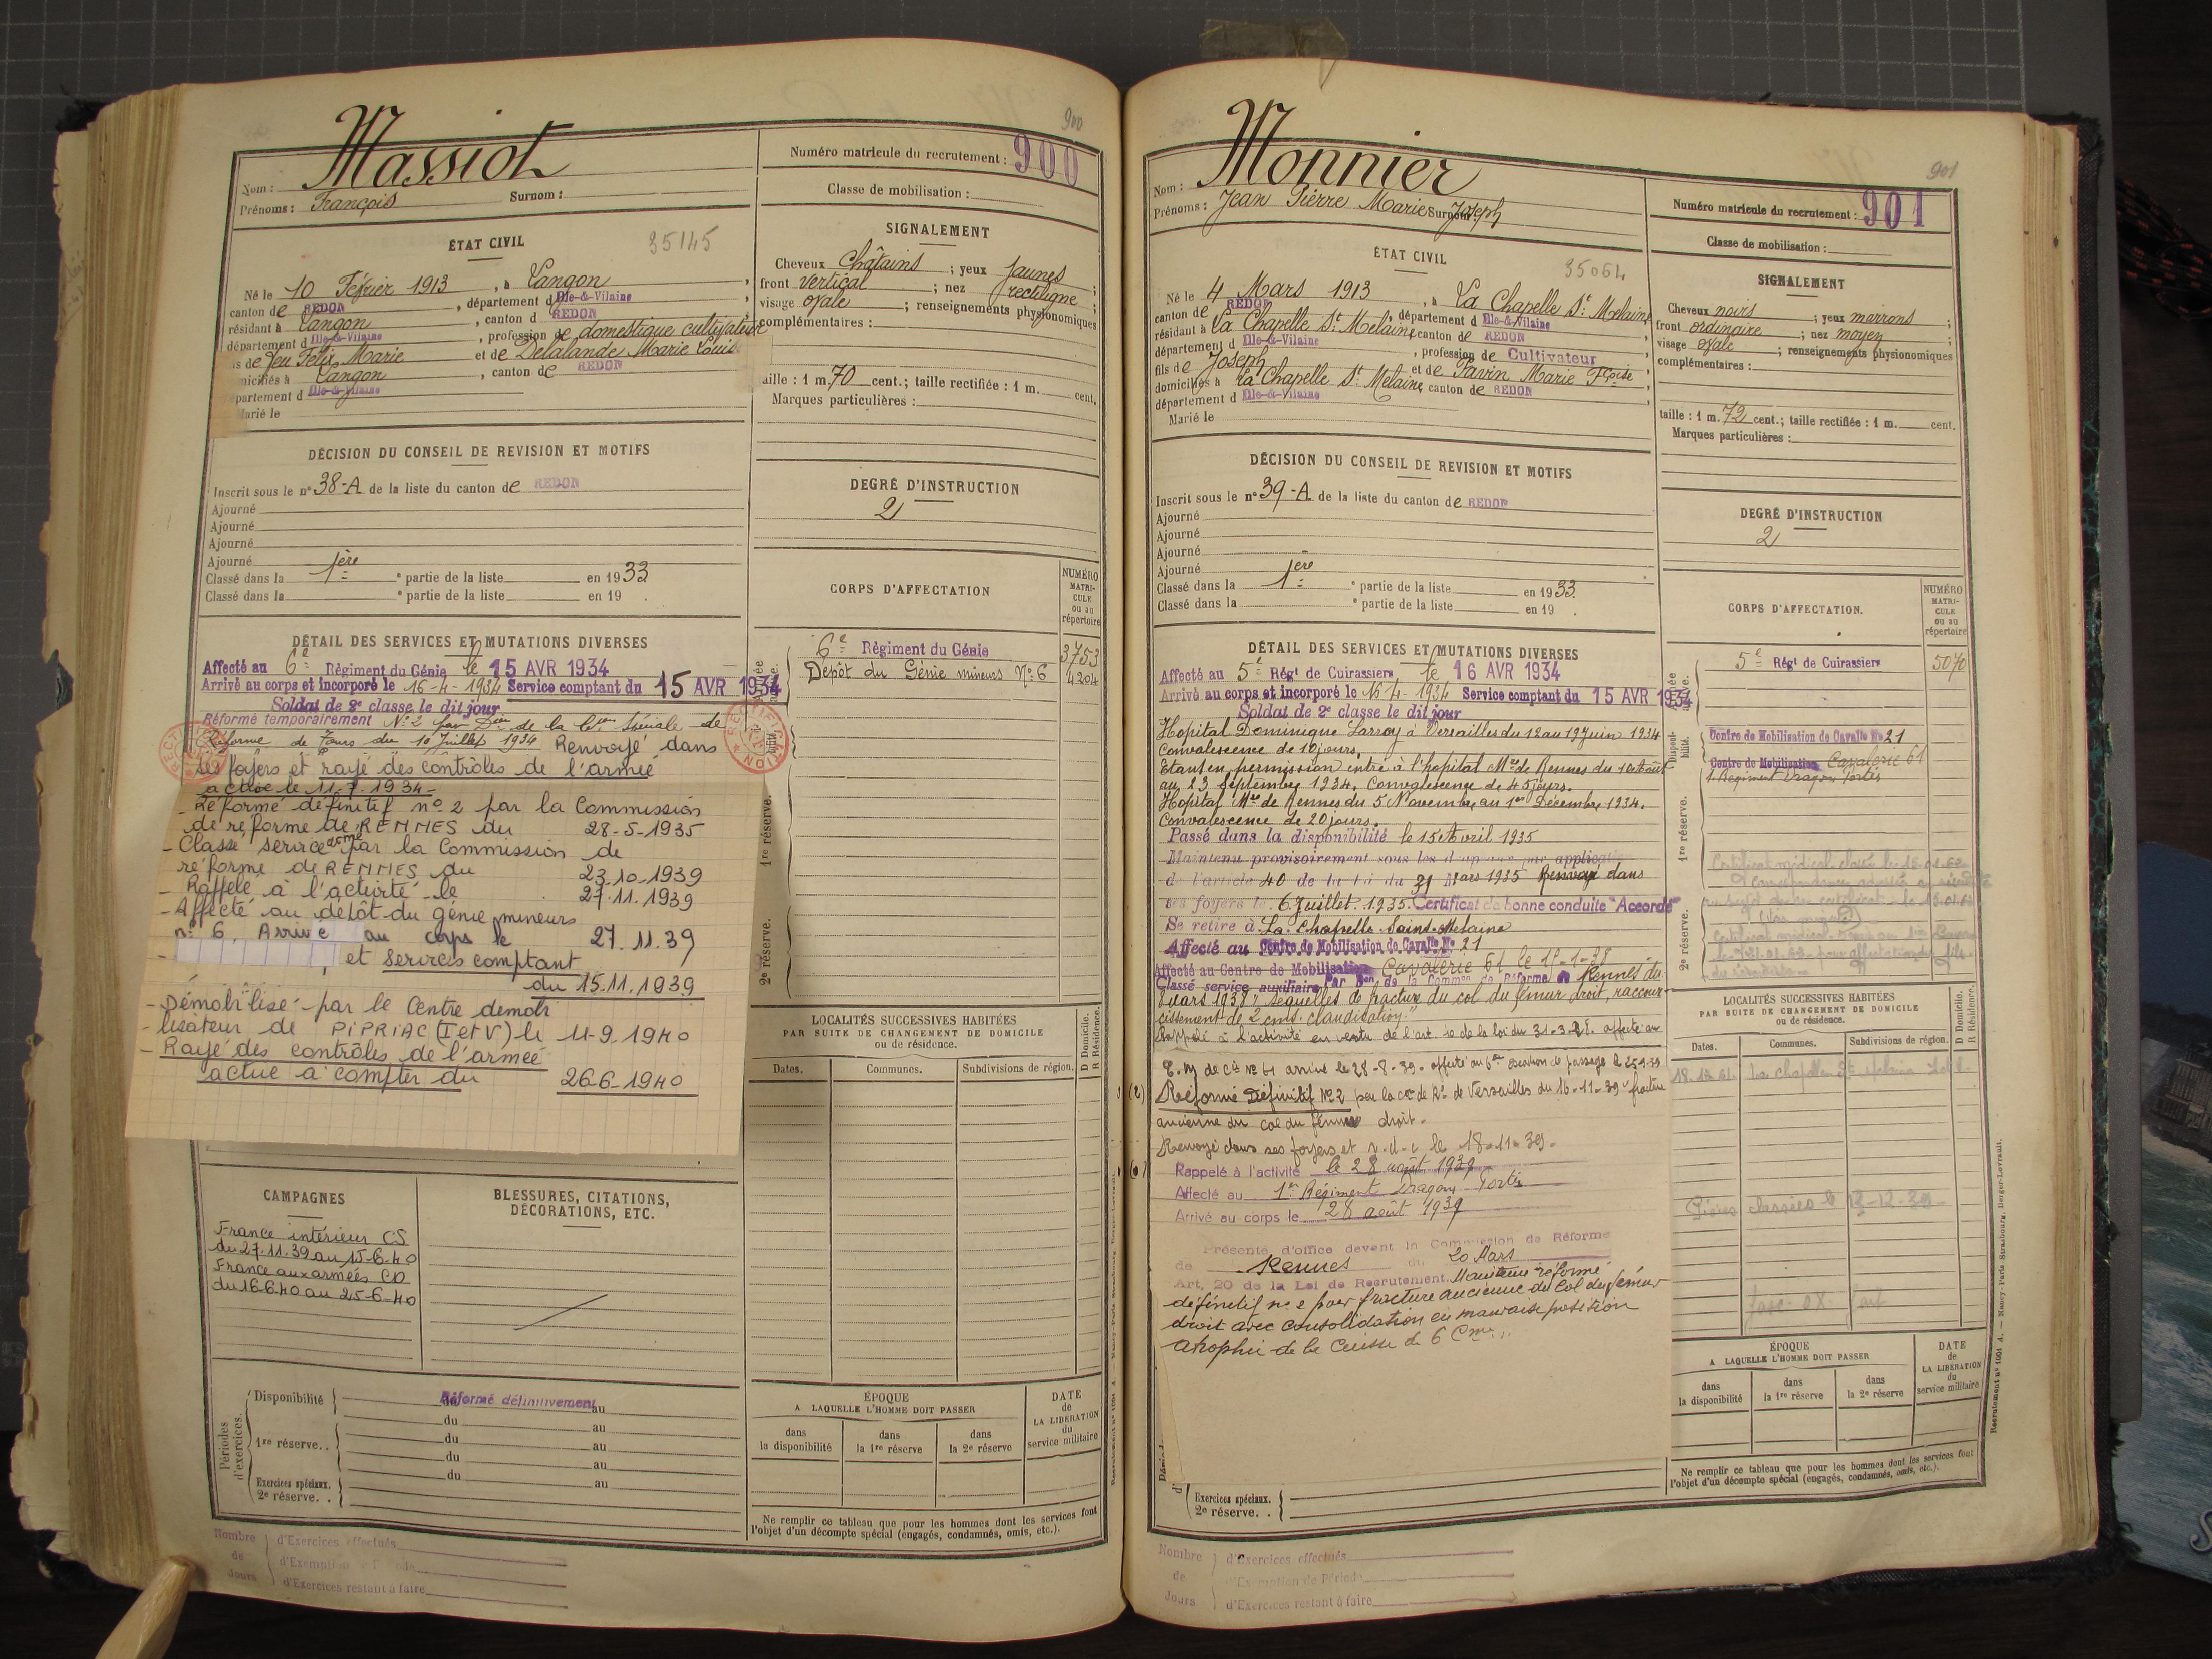 900
Massiot
Nom :
Prénoms : François Surnom :
Numéro matricule du recrutement : 900
Classe de mobilisation :
ÉTAT CIVIL
35145
Né le 10 Février 1913, à Langon
canton de REDON, département d Ille-&-Vilaine
résidant à Langon, canton d REDON
département d Ille-&-Vilaine, profession de domestique cultivateur
s de feu Félix Marie et de Delalande Marie Louise
niciliés à Langon, canton de REDON
partement d Ille-&-Vilaine
Marié le
SIGNALEMENT
Cheveux châtains ; yeux jaunes ;
front vertical ; nez rectiligne ;
visage ovale ; renseignements physionomiques
complémentaires :
aille : 1 m. 70 cent.; taille rectifiée : 1 m. cent.
Marques particulières :
DÉCISION DU CONSEIL DE REVISION ET MOTIFS
Inscrit sous le n° 38-A de la liste du canton de REDON
Ajourné
Ajourné
Ajourné
Ajourné
Classé dans la 1ère partie de la liste en 1933
Classé dans la partie de la liste en 19 .
DEGRÉ D'INSTRUCTION
2
CORPS D'AFFECTATION
NUMÉRO MATRI-CULE ou au répertoire
6e Régiment du Génie 3753
Dépôt du Génie mineurs N° 6 4204
DÉTAIL DES SERVICES ET MUTATIONS DIVERSES
Affecté au 6e Régiment du Génie le 15 AVR 1934
Arrivé au corps et incorporé le 16-4-1934 Service comptant du 15 AVR 1934
Soldat de 2e classe le dit jour
Réformé temporairement N° 2 par Don de la Con Spéciale de
Réforme de Tours du 10 Juillet 1934 Renvoyé dans
ses foyers et rayé des contrôles de l'armée
active le 11-7-1934-
- Réformé définitif n° 2 par la Commission
de réforme de RENNES du 28-5-1935
- Classé service armé par la Commission de
réforme de RENNES du 23.10.1939
- Rappelé à l'activité le 27.11.1939
- Affecté au dépôt du génie mineurs
n° 6. Arrivé au corps le 27.11.39
- , et services comptant
du 15.11.1939
- Démobilisé par le Centre démobi
- lisateur de PIPRIAC (I et V) le 11-9-1940
- Rayé des contrôles de l'armée
active à compter du 26-6-1940
1re réserve.
2e réserve.
LOCALITÉS SUCCESSIVES HABITÉES
PAR SUITE DE CHANGEMENT DE DOMICILE
ou de résidence.
D Domicile.
R Résidence.
Dates. Communes. Subdivisions de région.
CAMPAGNES
France intérieur CS
du 27.11.39 au 15-6-40
France aux armées CD
du 16-6-40 au 25-6-40
BLESSURES, CITATIONS,
DÉCORATIONS, ETC.
Périodes d'exercices.
Disponibilité Réformé définitivement au
du au
1re réserve. . du au
du au
Exercices spéciaux. du au
2e réserve. .
ÉPOQUE
A LAQUELLE L'HOMME DOIT PASSER
dans la disponibilité
dans la 1re réserve
dans la 2e réserve
DATE de LA LIBÉRATION du service militaire
Ne remplir ce tableau que pour les hommes dont les services font
l'objet d'un décompte spécial (engagés, condamnés, omis, etc.).
Nombre de Jours
d'Exercices effectués
d'Exemption
d'Exercices restant à faire
901
Monnier
Nom :
Prénoms : Jean Pierre Marie Surnom : Joseph
Numéro matricule du recrutement : 901
Classe de mobilisation :
ÉTAT CIVIL
35064
Né le 4 Mars 1913, à La Chapelle St Melaine
canton de REDON, département d Ille-&-Vilaine
résidant à La Chapelle St Melaine, canton de REDON
département d Ille-&-Vilaine, profession de Cultivateur
fils de Joseph et de Pavin Marie Fçoise
domiciliés à La Chapelle St Melaine, canton de REDON
département d Ille-&-Vilaine
Marié le
SIGNALEMENT
Cheveux noirs ; yeux marrons ;
front ordinaire ; nez moyen ;
visage ovale ; renseignements physionomiques
complémentaires :
taille : 1 m. 72 cent.; taille rectifiée : 1 m. cent.
Marques particulières :
DÉCISION DU CONSEIL DE REVISION ET MOTIFS
Inscrit sous le n° 39-A de la liste du canton de REDON
Ajourné
Ajourné
Ajourné
Ajourné
Classé dans la 1ère partie de la liste en 1933
Classé dans la partie de la liste en 19 .
DEGRÉ D'INSTRUCTION
2
CORPS D'AFFECTATION.
NUMÉRO MATRI-CULE ou au répertoire
5e Régt de Cuirassiers 5070
Centre de Mobilisation de Cavalie No 21
Centre de Mobilisation Cavalerie 61
1. Régiment Dragons Portés
DÉTAIL DES SERVICES ET MUTATIONS DIVERSES
Affecté au 5e Régt de Cuirassiers le 16 AVR 1934
Arrivé au corps et incorporé le 16-4-1934 Service comptant du 15 AVR 1934
Soldat de 2e classe le dit jour
Hopital Dominique Larrey à Versailles du 12 au 19 Juin 1934
Convalescence de 10 jours.
Etant en permission entré à l'hopital Mre de Rennes du 10 Août
au 23 Septembre 1934. Convalescence de 45 jours.
Hopital Mre de Rennes du 5 Novembre au 1er Décembre 1934.
Convalescence de 20 jours.
Passé dans la disponibilité le 15 Avril 1935
Maintenu provisoirement sous les drapeaux par applicati
de l'article 40 de la Loi du 31 Mars 1935 Renvoyé dans
ses foyers le 6 Juillet 1935. Certificat de bonne conduite "Accordé"
Se retire à La Chapelle Saint-Melaine
Affecté au Centre de Mobilisation de Cavalie No 21
Affecté au Centre de Mobilisation Cavalerie 61 le 1º-1-38
Classé service auxiliaire Par Don de la Common de Réforme Rennes du
8 mars 1938 "Séquelles de fracture du col du fémur droit, raccour-
cissement de 2 cms. claudication."
Rappelé à l'activité en vertu de l'art. de la loi du 31-3-28. affecté au
C. M de Cie N° 61 arrivé le 28-8-39. affecté au escadron de passage le
Réformé Définitif N° 2 par la con de Rme de Versailles du 16-11-39 "fracture
ancienne du col du fémur droit.
Renvoyé dans ses foyers et r.d.c le 18-11-39.
Rappelé à l'activité le 28 août 1939
Affecté au 1er Régiment Dragons Portés
Arrivé au corps le 28 août 1939
Présenté d'office devant la Commission de Réforme
de Rennes du 20 Mars
Art. 20 de la Loi de Recrutement. Maintenu réformé
définitif n° 2 pour fracture ancienne du Col du fémur
droit avec consolidation en mauvaise position
atrophie de la Cuisse de 6 Cm.
1re réserve.
2e réserve.
LOCALITÉS SUCCESSIVES HABITÉES
PAR SUITE DE CHANGEMENT DE DOMICILE
ou de résidence.
D Domicile.
R Résidence.
Dates. Communes. Subdivisions de région.
18.12.61. La chapelle Ste Melaine
Pièces classées le
ÉPOQUE
A LAQUELLE L'HOMME DOIT PASSER
dans la disponibilité
dans la 1re réserve
dans la 2e réserve
DATE de LA LIBÉRATION du service militaire
Ne remplir ce tableau que pour les hommes dont les services font
l'objet d'un décompte spécial (engagés, condamnés, omis, etc.).
Exercices spéciaux.
2e réserve. .
Nombre de Jours
d'Exercices effectués
d'Exemption de Période
d'Exercices restant à faire
Recrutement n° 1001 A. — Nancy-Paris-Strasbourg, Berger-Levrault.